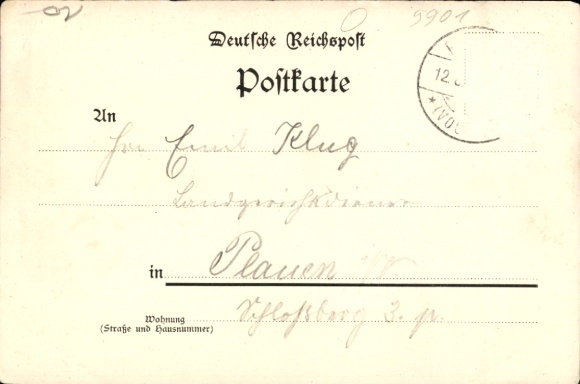 5901
Deutsche Reichspost
Postkarte
12
(VOG
An
Hrn Emil Klug
Landgerichtsdiener
in Plauen i/V.
Wohnung
(Straße und Hausnummer)
Schloßberg 3. p.